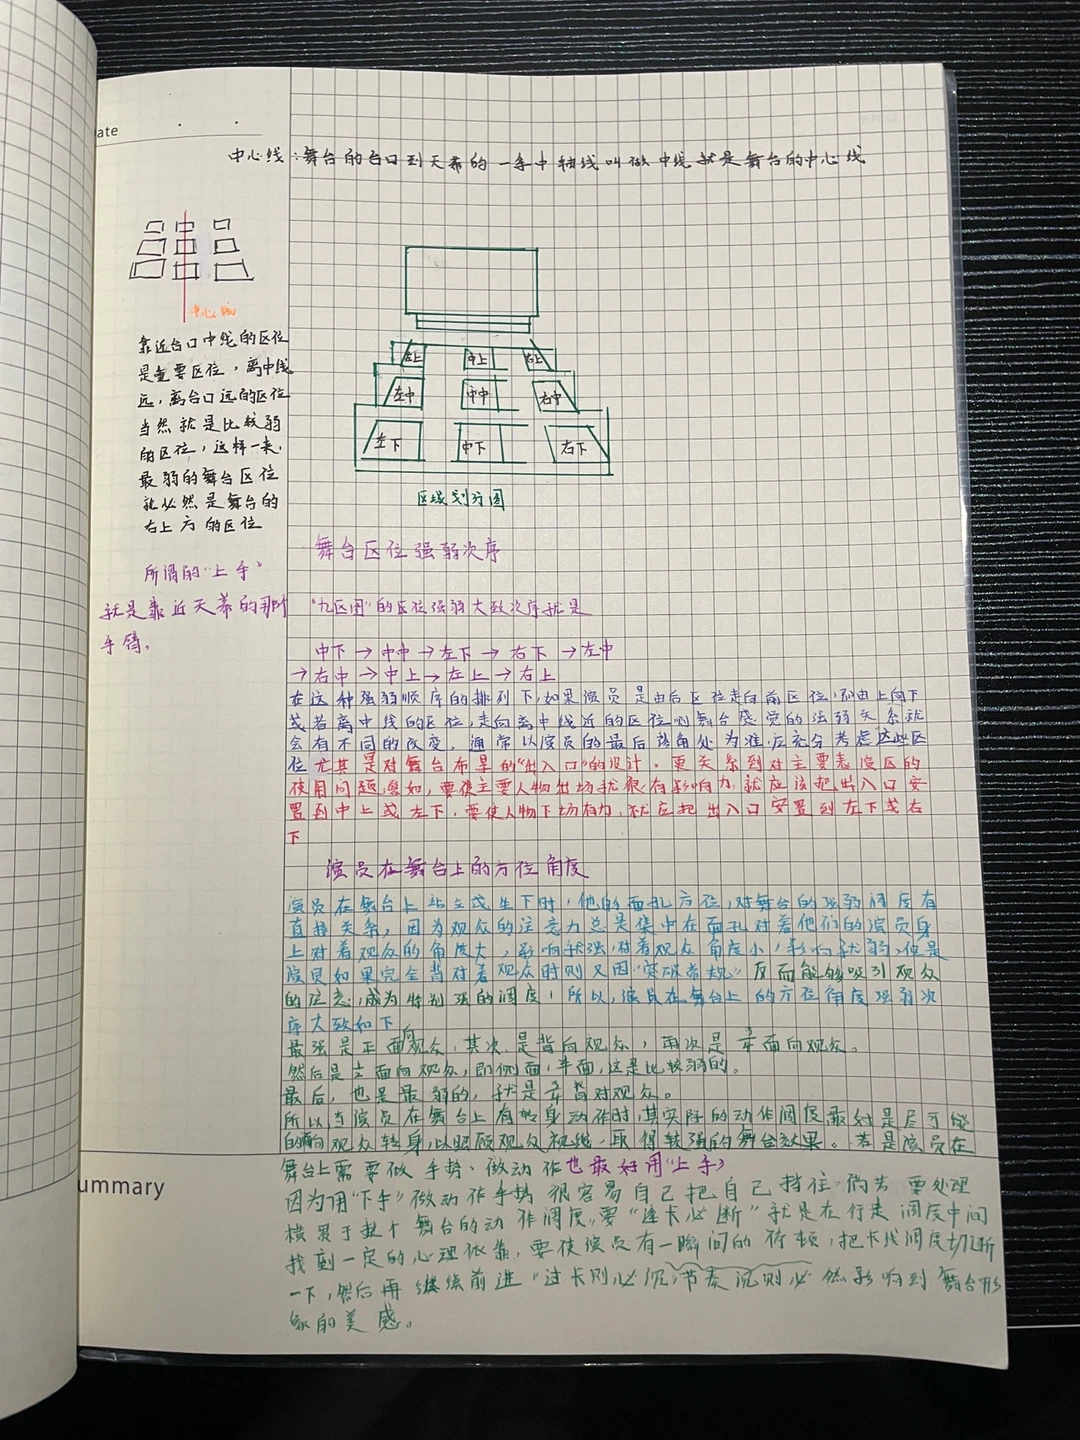 ate
中心线：舞台的台口到天幕的一条中轴线叫做中线就是舞台的中心线
中心线
靠近台口中线的区位
是重要区位，离中线
远，离台口远的区位
当然就是比较弱
的区位，这样一来，
最弱的舞台区位
就必然是舞台的
右上方的区位
所谓的“上手”
就是靠近天幕的那个
手臂。
左上 中上 右上
左中 中中 右中
左下 中下 右下
区域划分图
舞台区位强弱次序
“九区图”的区位强弱大致次序就是
中下→中中→左下→右下→左中
→右中→中上→左上→右上
在这种强弱顺序的排列下，如果演员是由后区位走向前区位，即由上向下
或者离中线的区位，走向离中线近的区位，则舞台感觉的强弱关系就
会有不同的改变，通常以演员的最后落角处为准，应充分考虑这些区
位尤其是对舞台布景的“出入口”的设计。更关系到对主要表演区的
使用问题，譬如，要使主要人物出场就很有影响力，就应该把出入口安
置到中上或左下，要使人物下场有力，就应把出入口安置到左下或右
下
演员在舞台上的方位角度
演员在舞台上站立或坐下时，他的面孔方位，对舞台的强弱调度有
直接关系，因为观众的注意力总是集中在面孔对着他们的演员身
上对着观众的角度大，影响就强，对着观众角度小，影响就弱，但是
演员如果完全背对着观众时则又因“突破常规”反而能够吸引观众
的注意，成为特别强的调度，所以，演员在舞台上的方位角度强弱次
序大致如下
最强是正面向观众，其次，是背向观众，再次是面向观众。
然后是面向观众，即侧面，半面，这是比较弱的。
最后，也是最弱的，就是背对观众。
所以当演员在舞台上有转身动作时，其实际的动作调度最好是尽可能
的朝观众转身，以照顾观众视线，取得较强的舞台效果。若是演员在
舞台上需要做手势、做动作也最好用“上手”
因为用“下手”做动作手势很容易自己把自己挡住 倘若要处理
横贯于整个舞台的动作调度，要“逢卡必断”就是在行走调度中间
找到一定的心理依靠，要使演员有一瞬间的停顿，把卡线调度切断
一下，然后再继续前进“过卡则必沉，节奏沉则必然影响到舞台形
象的美感。
ummary